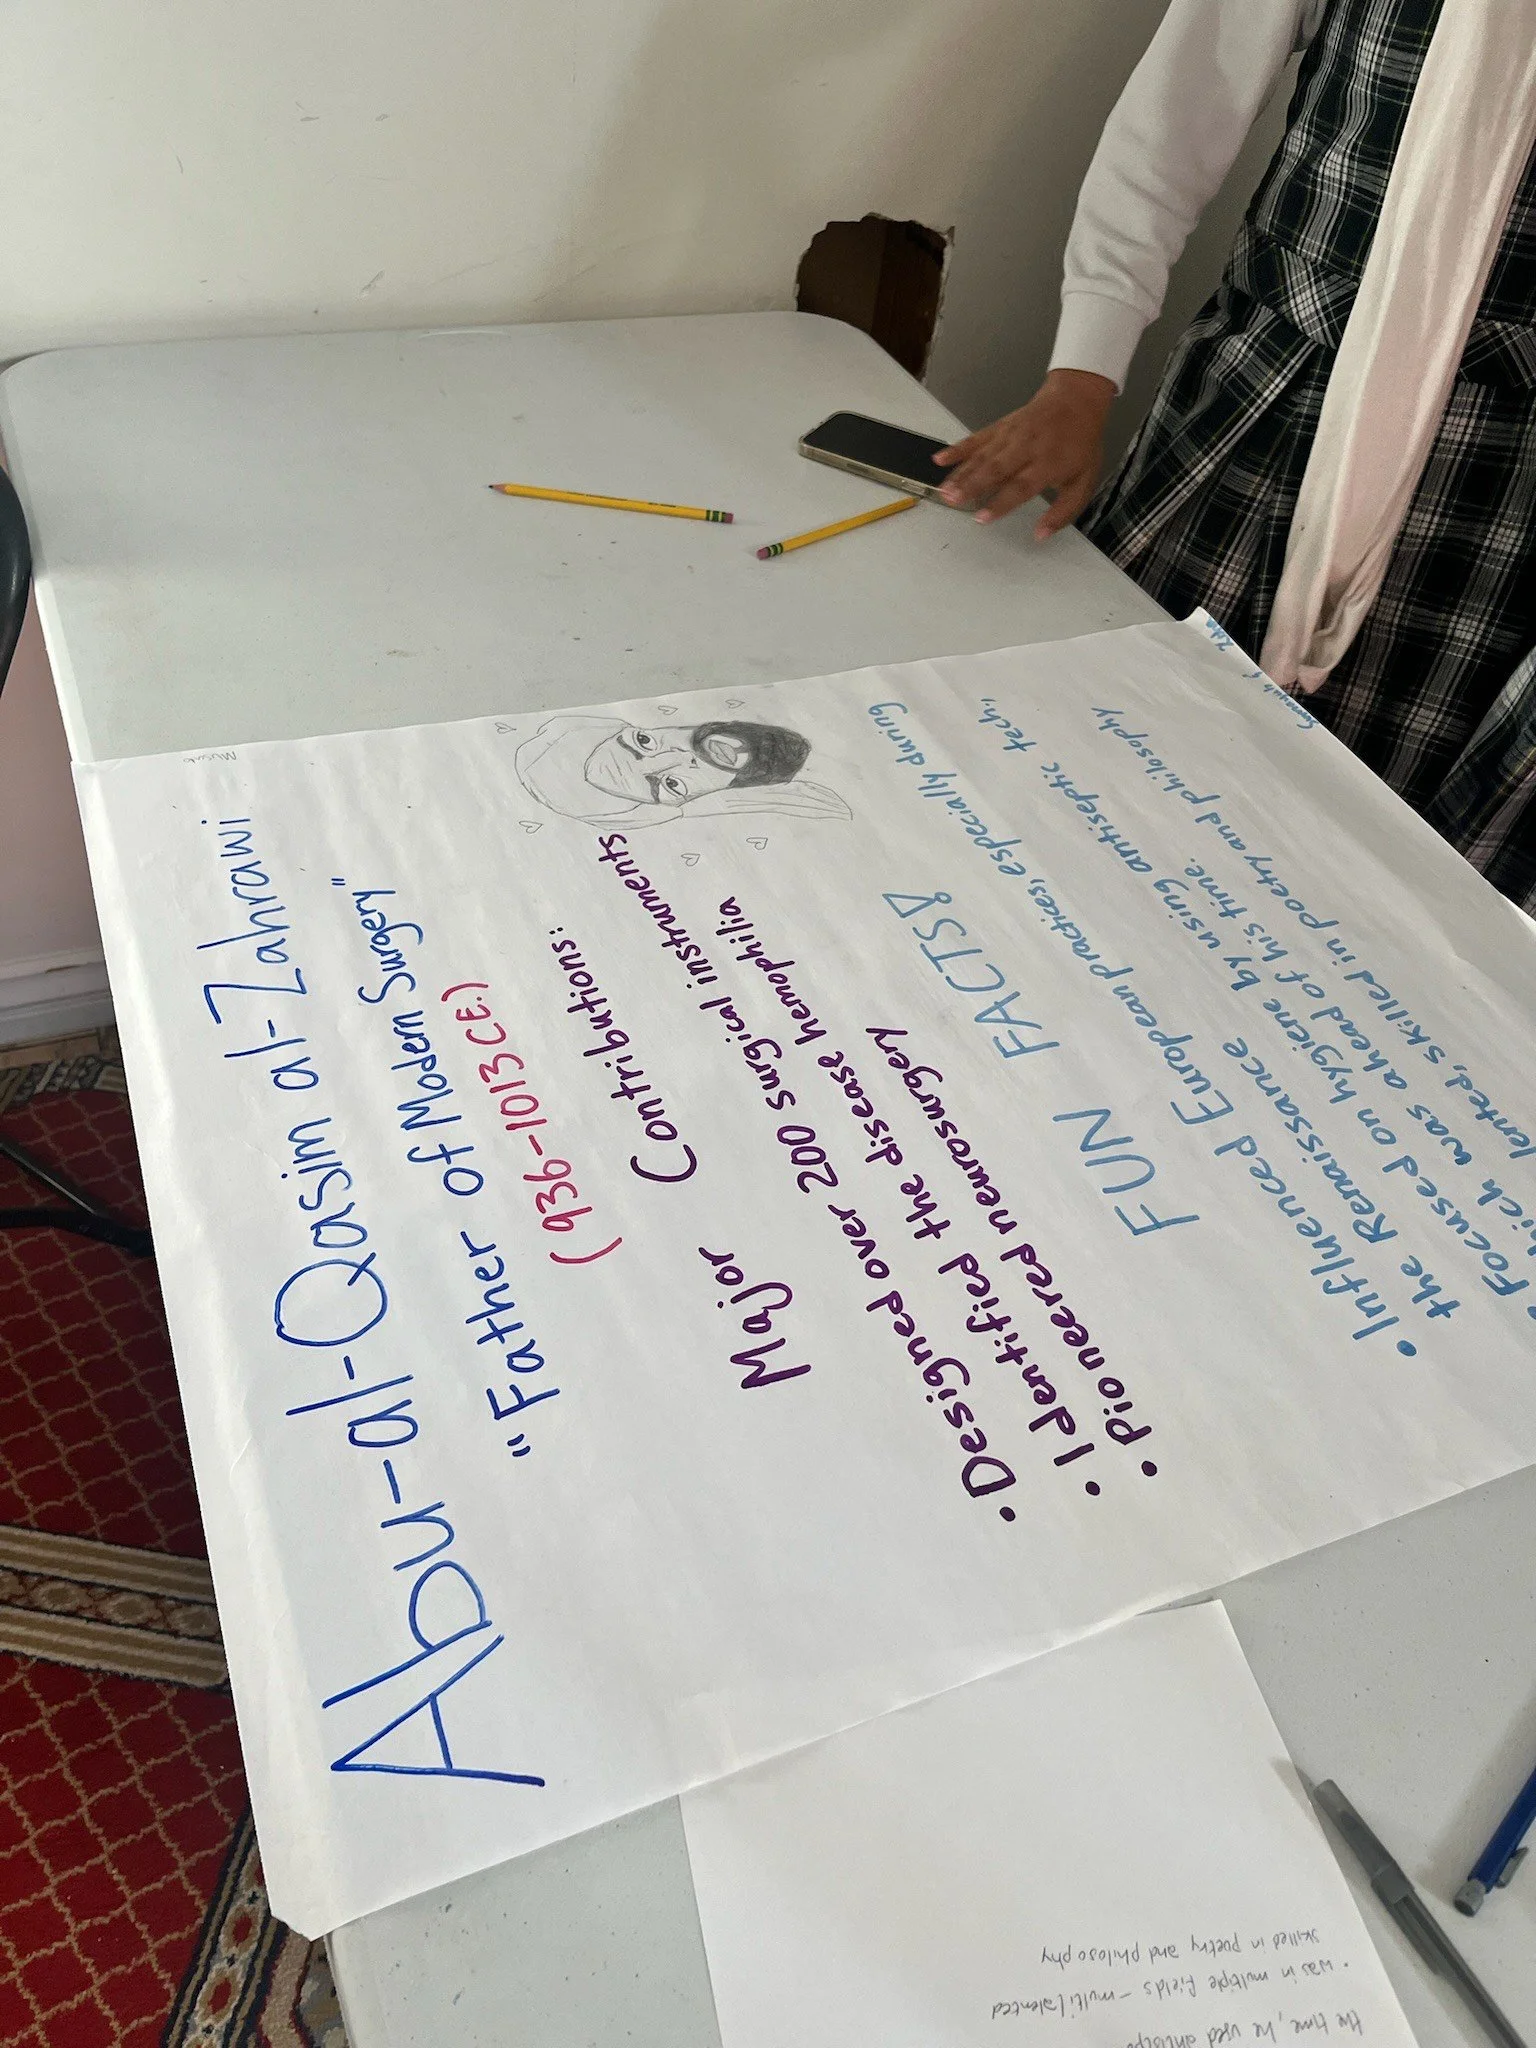 Abu-al-Qasim al-Zahrawi
"Father of Modern Surgery"
(936-1013 CE.)
Major Contributions:
• Designed over 200 surgical instruments
• Identified the disease hemophilia
• Pioneered neurosurgery
FUN FACTS!
• Influenced European practices, especially during
the Renaissance
• Focused on hygiene by using antiseptic tech,
which was ahead of his time.
lented, skilled in poetry and philosophy
the time, he used antisep
• was in multiple fields - multitalented
skilled in poetry and philosophy